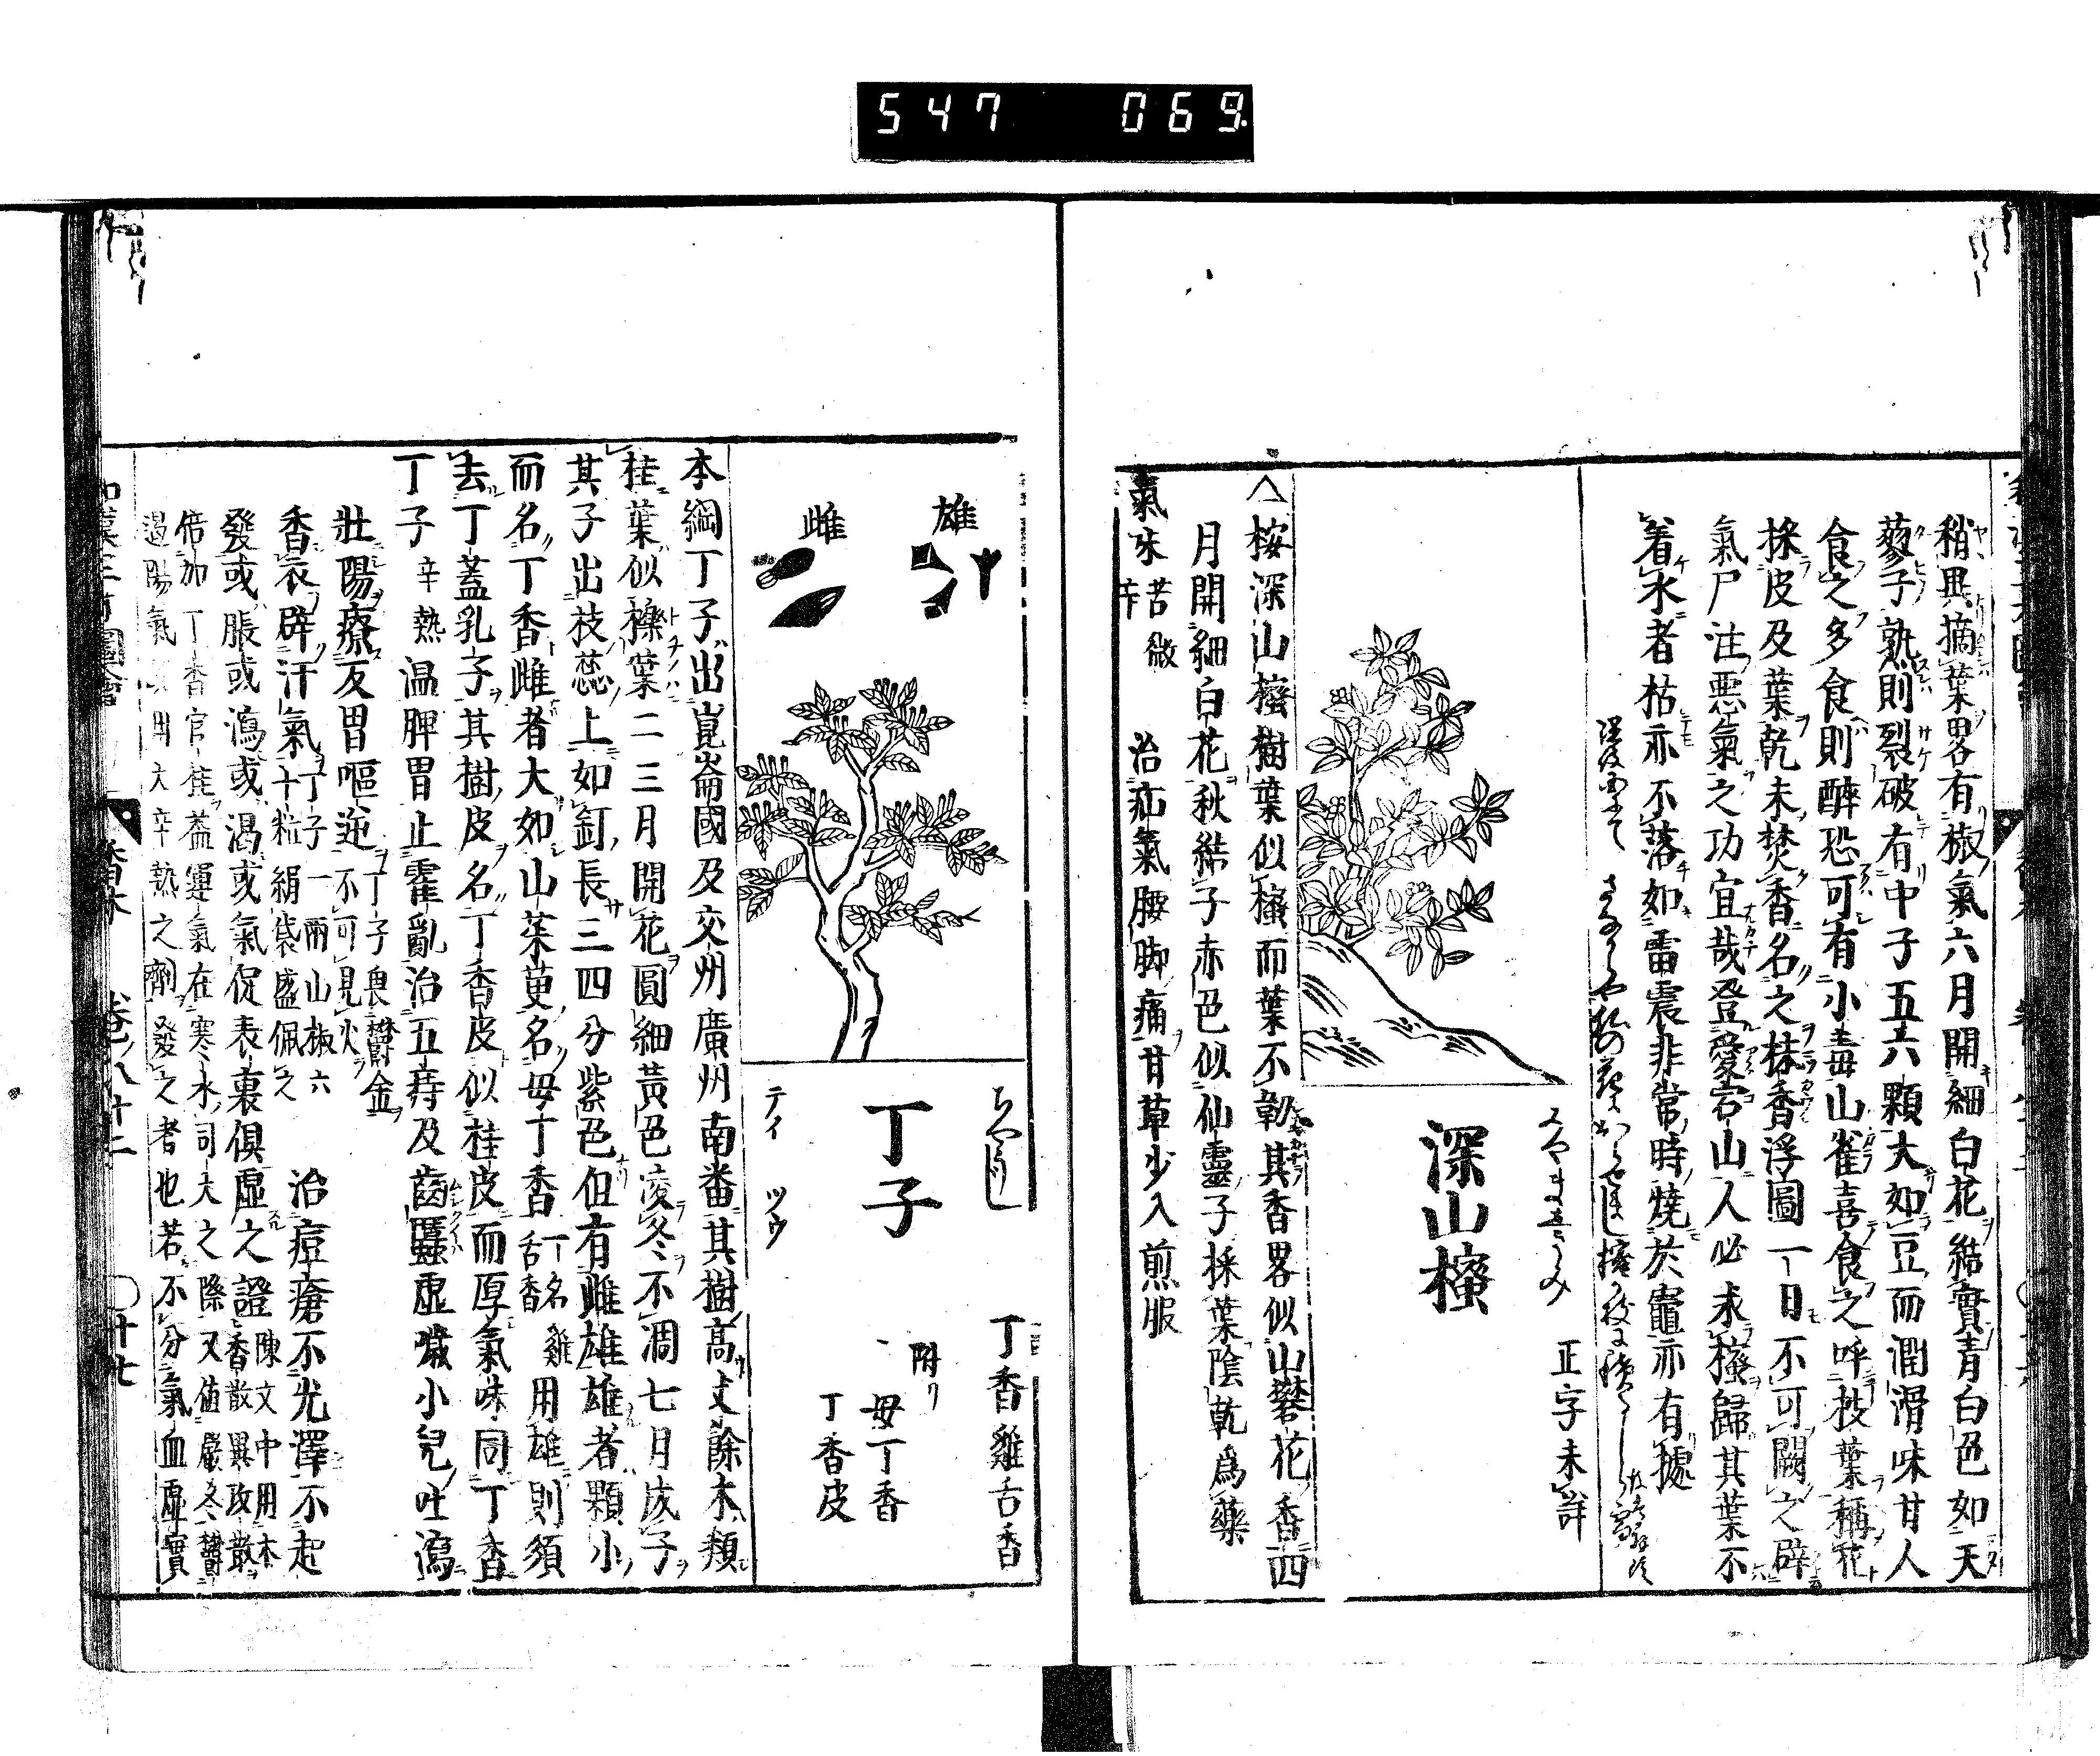 547 069
稍異摘葉畧有椒氣六月開細白花結實青白色如天
蓼子熟則裂破有中子五六顆大如豆而潤滑味甘人
食之多食則醉恐可有小毒山雀喜食之呼枝葉稱花
採皮及葉乾末焚香名之抹香浮圖一日不可闕之辟
氣尸注惡氣之功宜哉登愛宕山人必求樒歸其葉不
着水者枯亦不落如雷震非常時燒於竈亦有據
みやましきみ
深山樒
正字未詳
△桉深山樒樹葉似樒而葉不韌其香畧似山礬花香四
月開細白花秋結子赤色似仙靈子採葉陰乾爲藥
氣味苦微辛 治疝氣腰脚痛甘草少入煎服
雄
雌
ちやうじ
丁子
テイ ツウ
丁香 雞舌香
附リ
母丁香
丁香皮
本綱丁子出崑崙國及交州廣州南番其樹高丈餘木類
桂葉似櫟葉二三月開花圓細黃色凌冬不凋七月成子
其子出枝蕊上如釘長三四分紫色但有雌雄雄者顆小
而名丁香雌者大如山茱萸名母丁香一名雞舌香用雄則須
去丁蓋乳子其樹皮名丁香皮似桂皮而厚氣味同丁香
丁子辛熱 温脾胃止霍亂治五痔及齒䘌虛噦小兒吐瀉
壯陽療反胃嘔逆丁子與欝金不可見火
香衣辟汗氣丁子一兩山椒六十粒絹袋盛佩之 治痘瘡不光澤不起
發或脹或瀉或渴或氣促表裏俱虛之證陳文中用木香散異攻散
倍加丁香官桂葢運氣在寒水司天之際又值嚴冬欝
遏陽氣 用大辛熱之劑發之者也若不分氣血虛實
香木 卷ノ八十二 〇十七